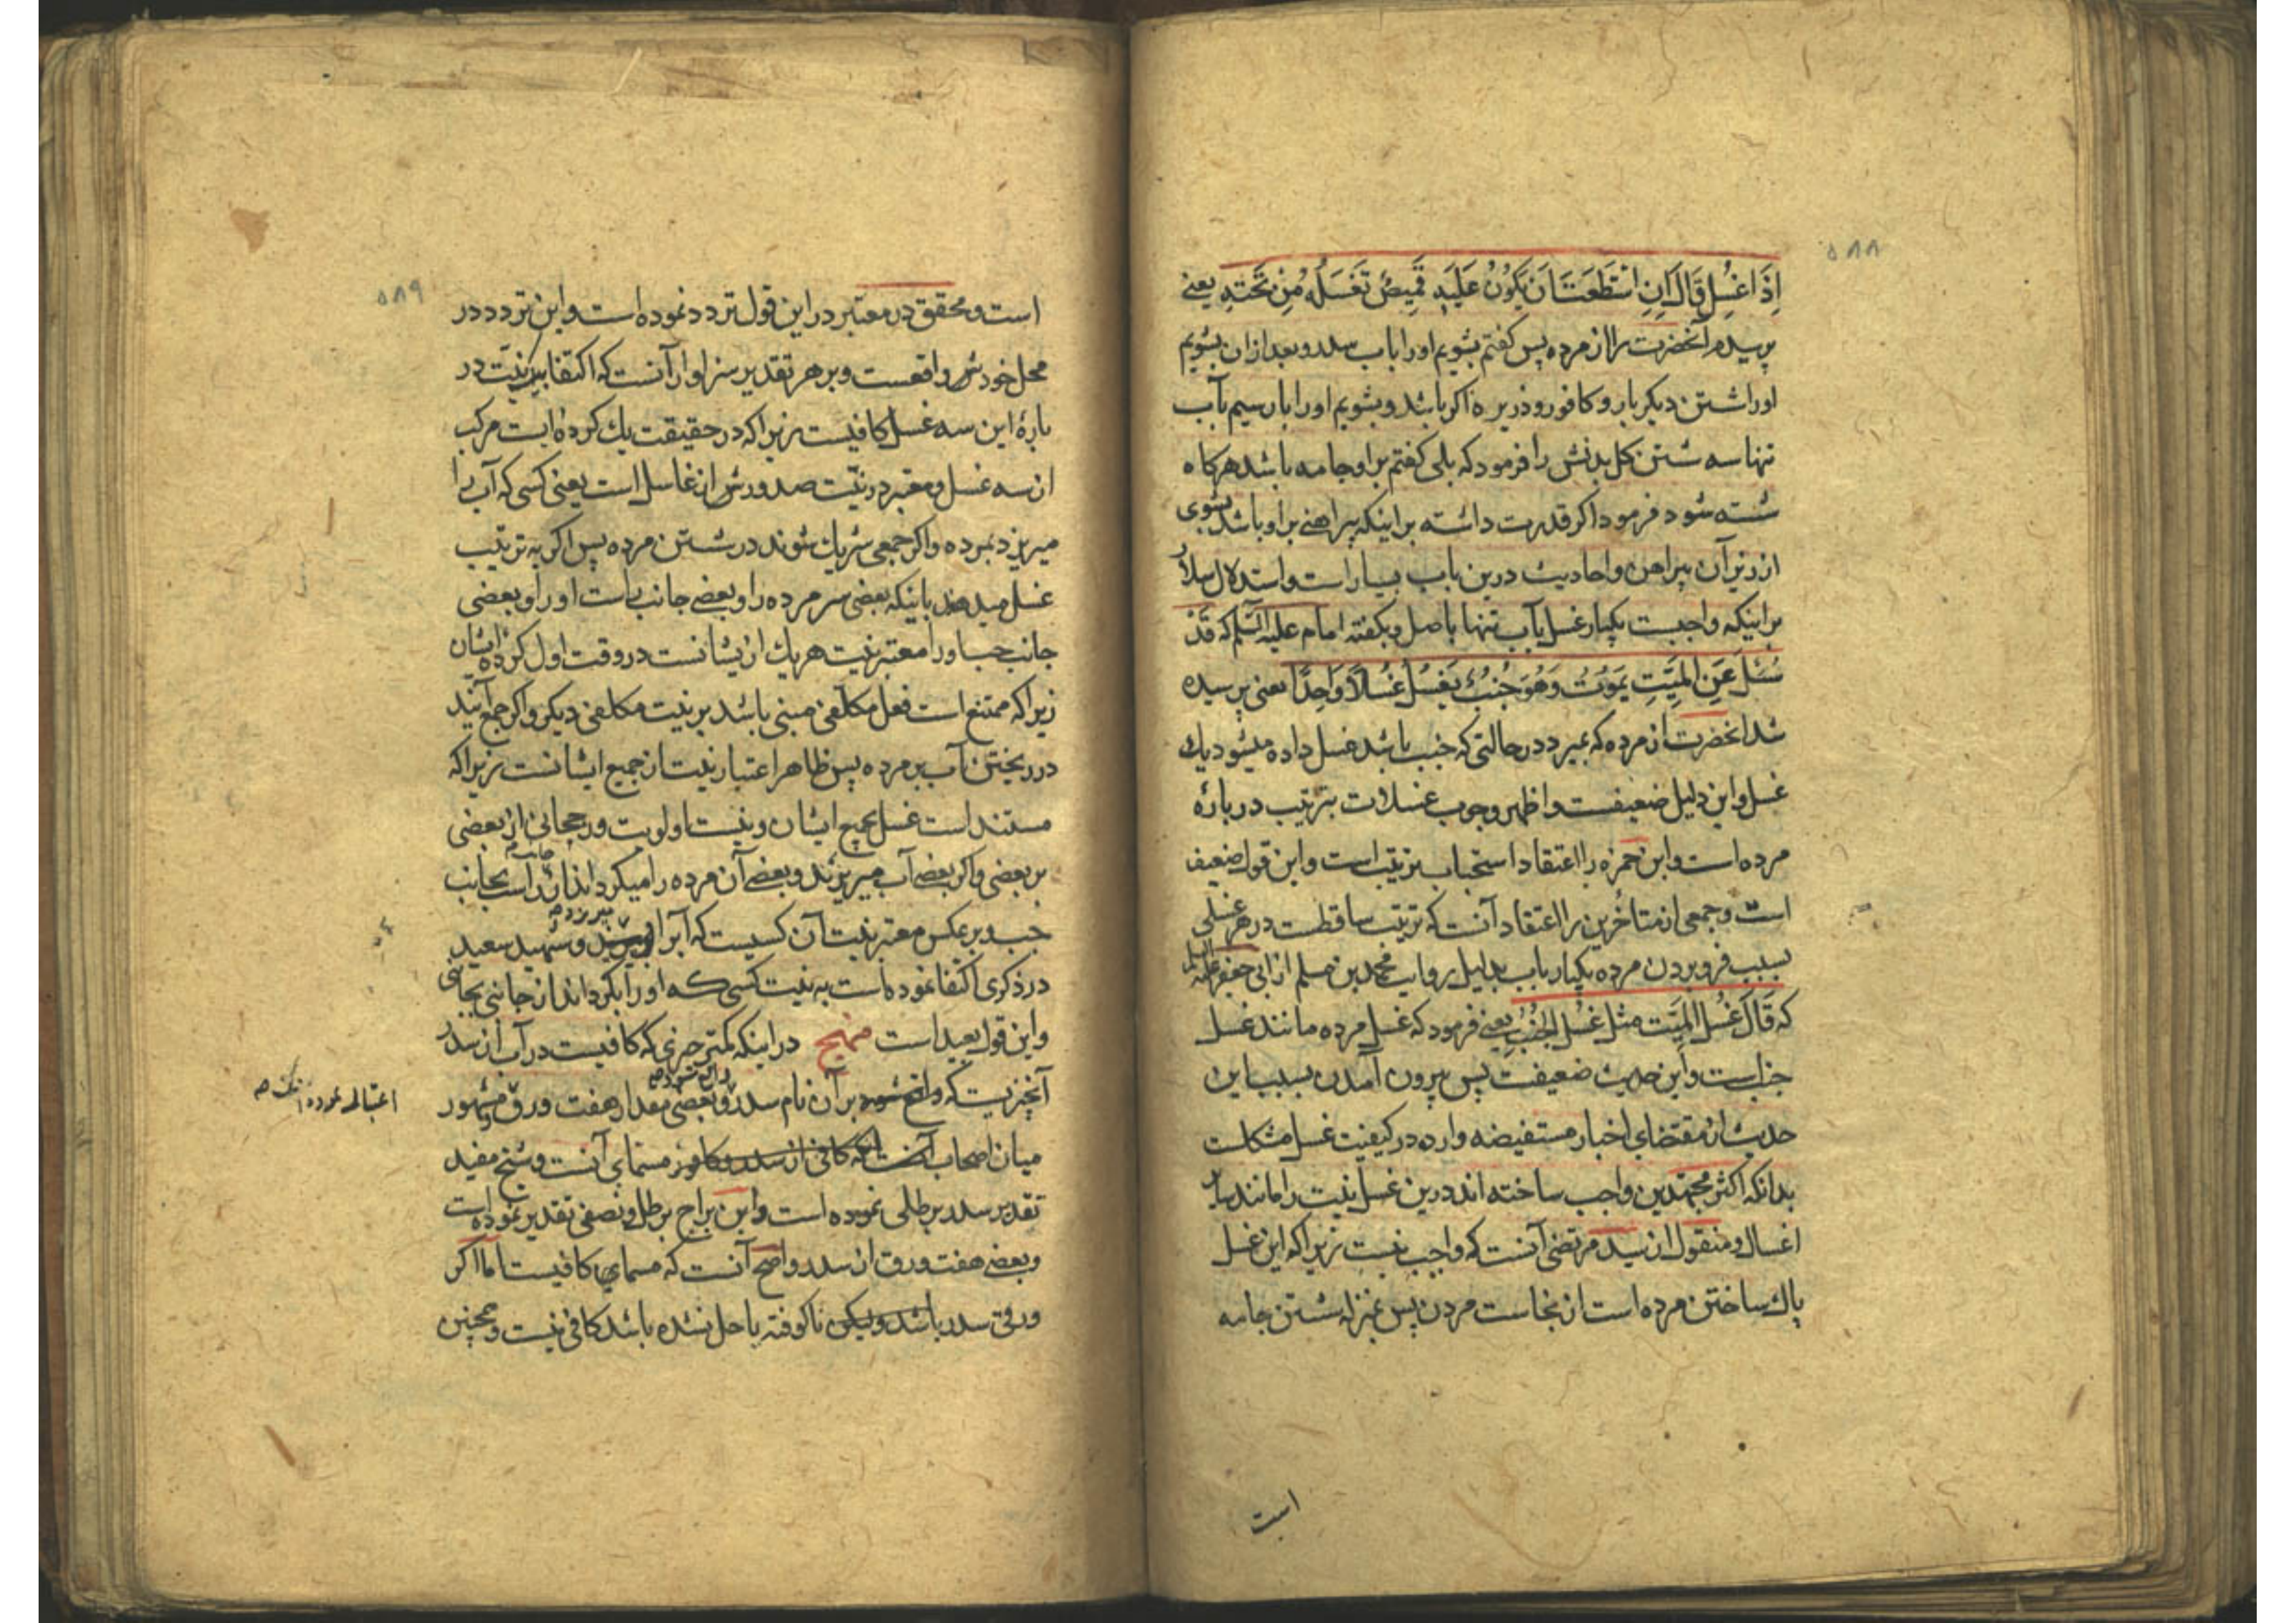 ۵۸۸
اِذَا غُسِلَ قَالَ اِنِ اسْتَطَعْتَ اَنْ یَکُوْنَ عَلَیْهِ قَمِیصٌ تَغْسِلُهُ مِنْ تَحْتِهِ یعنے
پرسیدم آنحضرت را از مرده پس کفتم بشویم اورا باب سدر و بعد ازان بشویم
اورا شستن دیکر بار و کافور و ذریره اکر باشد و بشویم اورا بار سیم بآب
تنها سه شستن کل بدنش را فرمود که بلی کفتم براو جامه باشد هرکاه
شسته شود فرمود اکر قدرت داشته براینکه پیراهنے براو باشد بشوی
از زیر آن پیراهن واحادیث درین باب بسیار است واستدلال سلار
براینکه واجبست یکبار غسل بآب تنها باصل و بکفته امام علیه السلم که قَدْ
سُئِلَ عَنِ الْمَیِّتِ یَمُوْتُ وَهُوَ جُنُبٌ یُغْسَلُ غُسْلًا وَاحِدًا یعنی پرسیده
شد انحضرت از مرده که بمیرد درحالتی که جنب باشد غسل داده میشود یك
غسل واین دلیل ضعیفست واظهر وجوب غسلات بترتیب دربارهٔ
مرده است وابن حمزه را اعتقاد استحباب ترتیب است واین قول ضعیف
است وجمعی از متاخرین را اعتقاد آنست که ترتیب ساقطست در هر غسلی
بسبب فرو بردن مرده یکبار باب بدلیل روایت محمد بن مسلم از ابی جعفر علیه السلم
که قَالَ غُسْلُ الْمَیِّت مثل غُسْلُ الْجُنُبِ یعنے فرمود که غسل مرده مانند غسل
جنب است واین حدیث ضعیفست پس بیرون آمدن بسبب این
حدیث از مقتضای اخبار مستفیضه وارده در کیفیت غسل مشکلست
بدانکه اکثر مجتهدین واجب ساخته اند درین غسل نیت را مانند سایر
اغسال ومنقول از سید مرتضی آنست که واجب نیست زیرا که این غسل
پاك ساختن مرده است از نجاست مردن پس بمنزله شستن جامه
است
۵۸۹
است ومحقق در معتبر در این قول تردد نموده است واین تردد در
محل خودش واقعست وبرهر تقدیر سزاوار آنست که اکتفا بیك نیّت در
بارهٔ این سه غسل کافیست زیرا که در حقیقت یك کرده ایست مرکب
از سه غسل ومعتبر در نیّت صدورش از غاسل است یعنی کسی که آب را
میریزد بمرده واکر جمعی شریك شوند در شستن مرده پس اکر به ترتیب
غسل میدهند باینکه بعضی سر مرده را وبعضے جانب راست اورا وبعضی
جانب چپ اورا معتبر نیت هریك از یشانست در وقت اول کردهٔ ایشان
زیرا که ممتنع است فعل مکلفی مبنی باشد بر نیت مکلفی دیکر واکر جمع آیند
در ریختن آب بر مرده پس ظاهر اعتبار نیت از جمیع ایشانست زیرا که
مستند است غسل بجمیع ایشان ونیست اولویت ورجحانی از بعضی
بر بعضی واکر بعضے آب میریزند وبعضے آن مرده را میکرداند از جانب راست بجانب
چپ و بر عکس معتبر نیت آن کسیست که آبرا میریزد وشهید سعید
در ذکری اکتفا نموده است به نیت کسی که اورا بکرداند از جانبی بجانبی
واین قول بعید است منهج در اینکه کمتر چیزی که کافیست در آب از سدر
آنچیزیست که واقع شود بر آن نام سدر وبعضی مقدار هفت ورق
اعتبار نموده اند
ومشهور
میان اصحاب مسمای آنست وشیخ مفید
تقدیر سدر برطلی نموده است وابن براج برطل ونصفی تقدیر نموده است
وبعضے هفت ورق از سدر واصح آنست که مسمای کافیست اما اکر
ورقی سدر باشد ولیکن ناکوفته یا حل نشده باشد کافی نیست وهمچنین